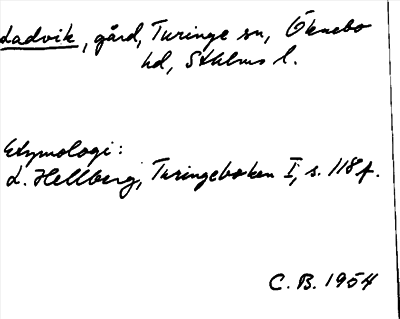 Ladvik, gård, Turinge sn, Öknebo
hd, Sthlms l.
Etymologi:
L. Hellberg, Turingeboken I, s. 118f.
C. B. 1954